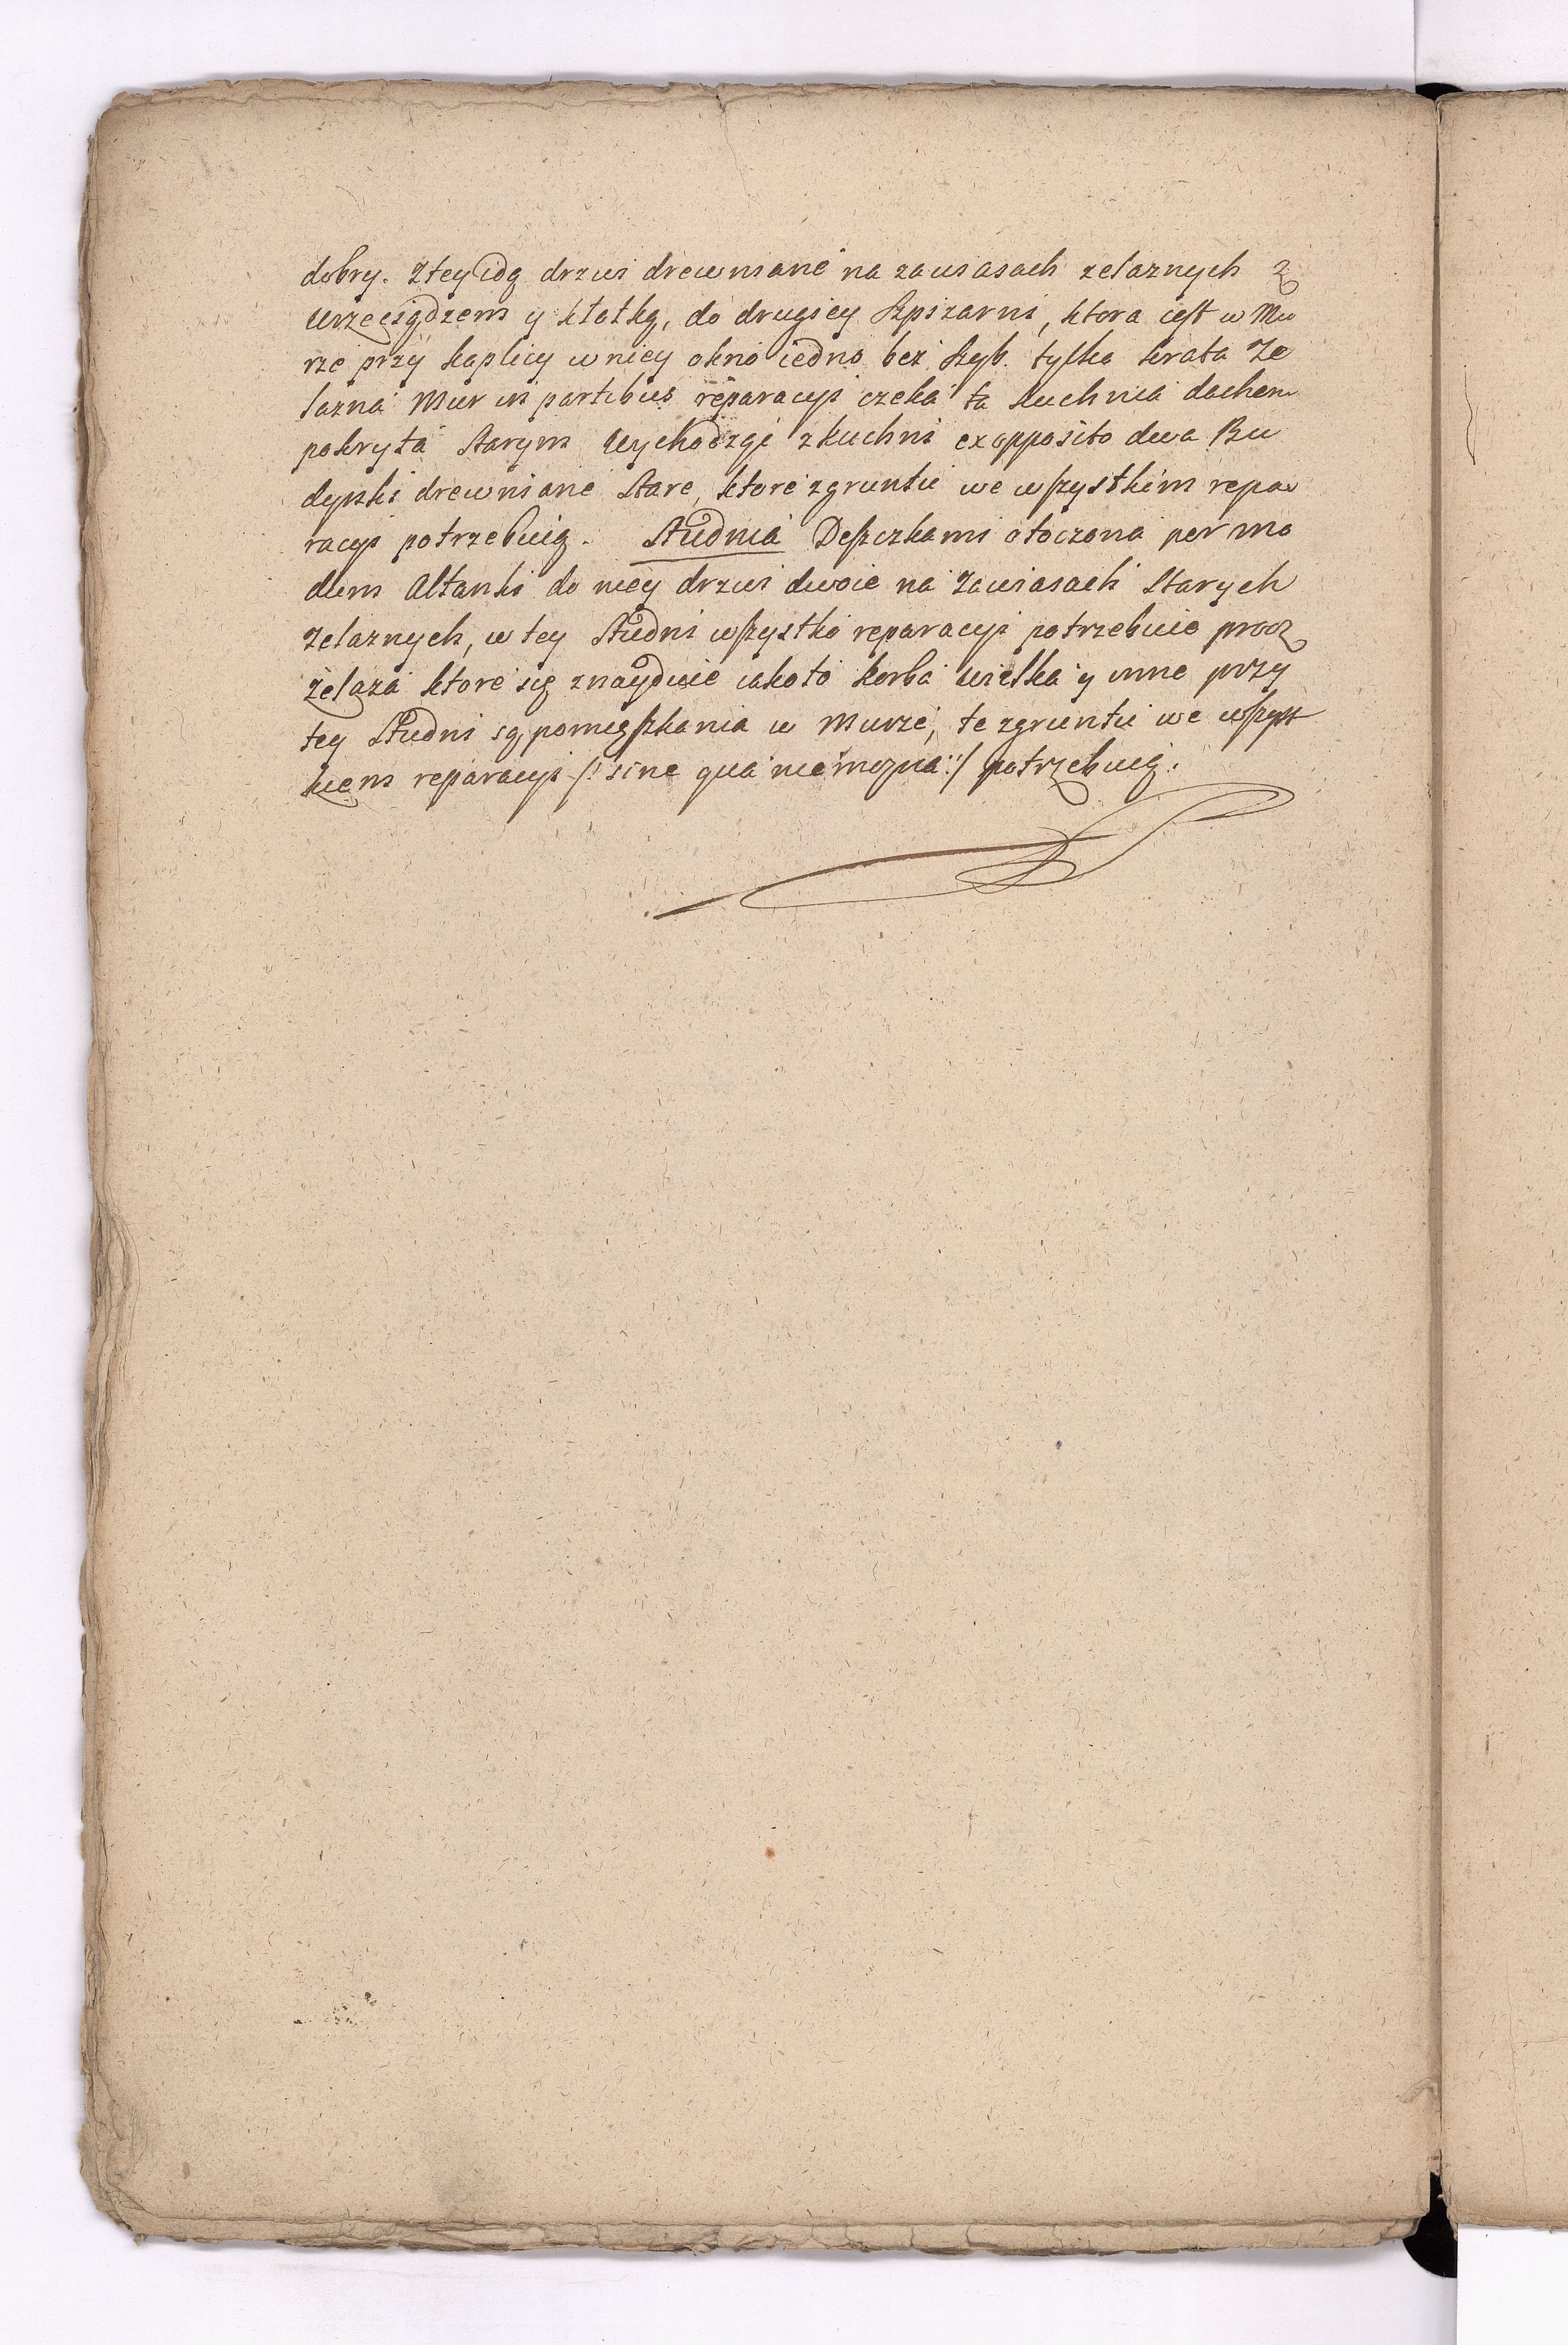 dobry. Ztey idą drzwi drewniane na zawiasach zelaznych z
wrzeciądzem y kłotką, do drugiey Szpizarni, ktora iest w Mu
rze przy kaplicy w niey okno iedno bez szyb. tylko krata Ze
lazna Mur in partibus reparacyi czeka ta kuchnia dachem
pokryta starym Wychodząc z kuchni ex opposito dwa Bu
dynki drewniane stare, ktore zgruntu we wszystkim repa
racyi potrzebuią. Studnia Deszczkami otoczona per mo
dum Altanki do niey drzwi dwoie na zawiasach starych
Zelaznych, w tey studni wszystko reparacyi potrzebuie procz
żelaza ktore się znayduie iako to korba wielka y inne przy
tey studni są pomięszkania w Murze, te zgruntu we wszyst
kiem reparacyi /: sine qua nie mozna :/ potrzebuią.